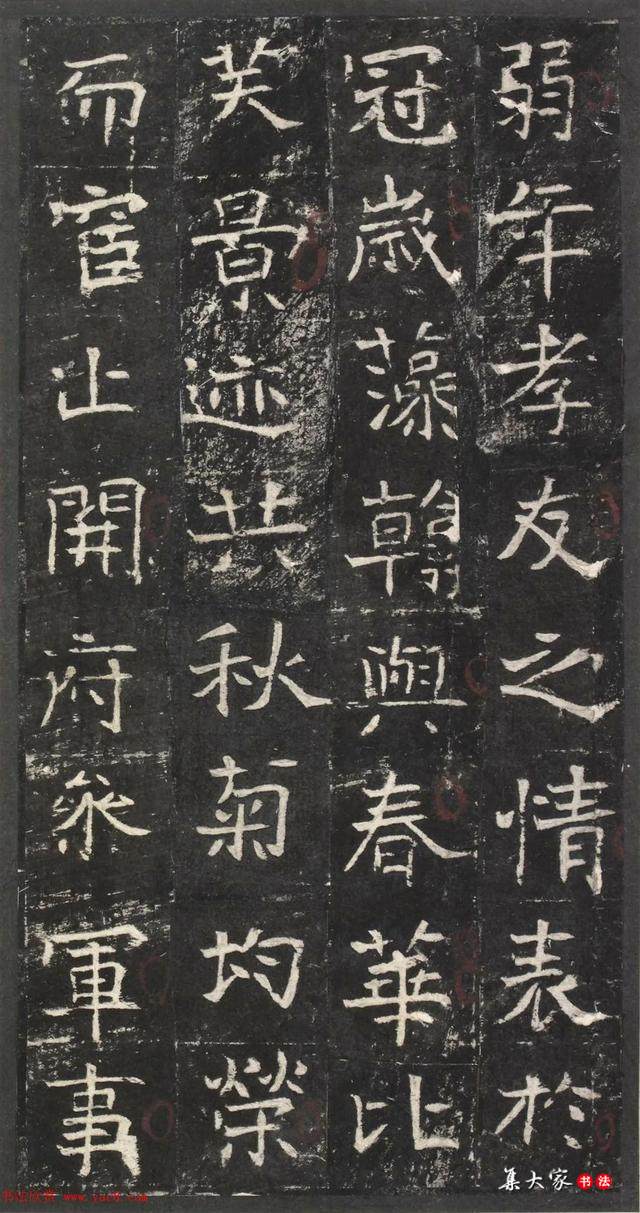 弱年孝友之情表於
冠歲藻翰與春華比
美景迹共秋菊均榮
而宦止開府參軍事
集大家书法
书法欣赏 www.yac8.com